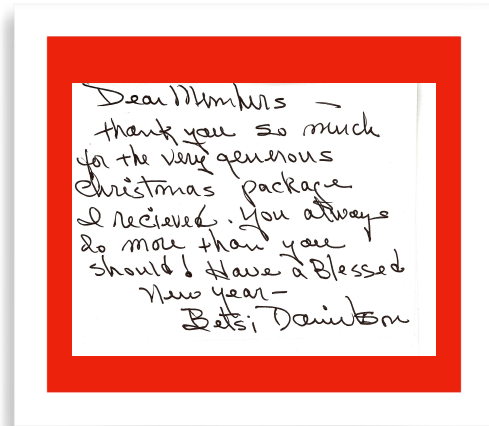 Dear Members —
thank you so much
for the very generous
Christmas package
I recieved. You always
do more than you
should! Have a Blessed
New year —
Betsi